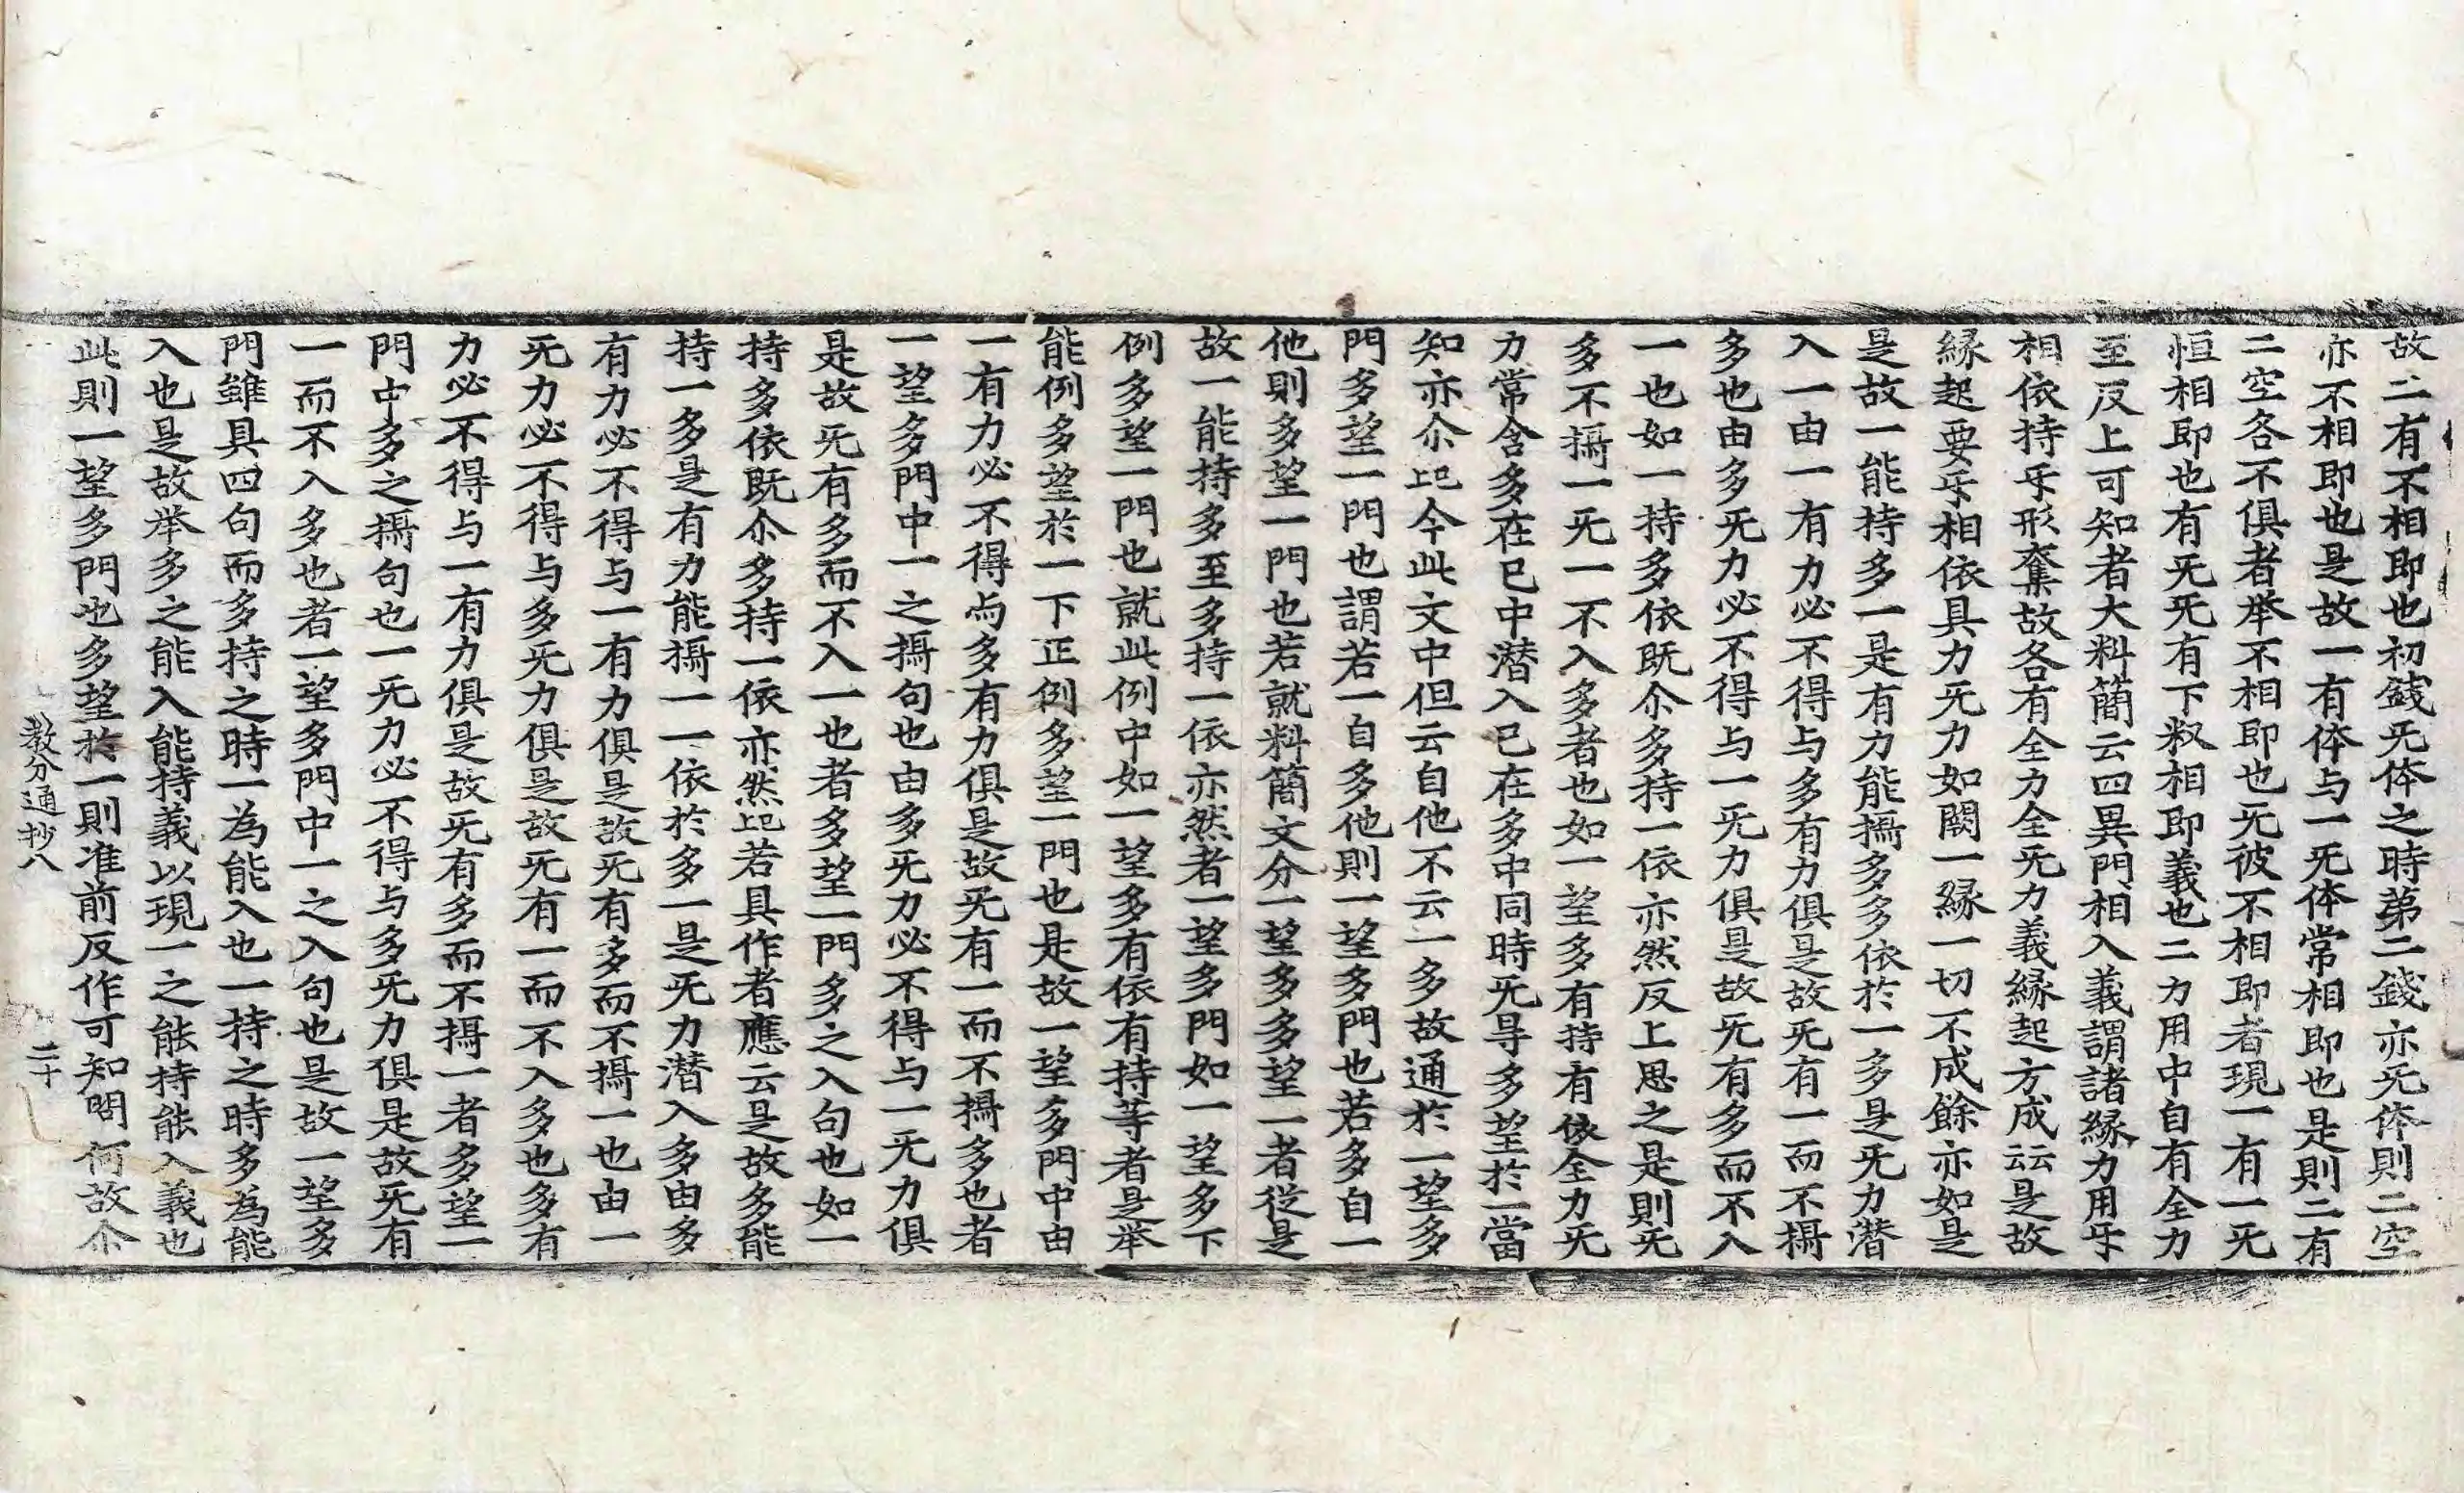 故二有不相即也初錢旡体之時苐二錢亦旡体則二空
亦不相即也是故一有体与一旡体常相即也是則二有
二空各不俱者举不相即也旡彼不相即者現一有一旡
恒相即也有旡旡有下釈相即義也二力用中自有全力
至反上可知者大料簡云四異門相入義謂諸縁力用㸦
相依持㸦形奪故各有全力全旡力義縁起方成云云是故
縁起要㸦相依具力旡力如闕一縁一切不成餘亦如是
是故一能持多一是有力能攝多多依於一多是旡力潜
入一由一有力必不得与多有力俱是故旡有一而不攝
多也由多旡力必不得与一旡力俱是故旡有多而不入
一也如一持多依既尒多持一依亦然反上思之是則旡
多不攝一旡一不入多者也如一望多有持有依全力旡
力常含多在已中潜入已在多中同時旡㝵多望於一當
知亦尒已上今此文中但云自他不云一多故通於一望多
門多望一門也謂若一自多他則一望多門也若多自一
他則多望一門也若就料簡文分一望多多望一者從是
故一能持多至多持一依亦然者一望多門如一望多下
例多望一門也就此例中如一望多有依有持等者是举
能例多望於一下正例多望一門也是故一望多門中由
一有力必不得与多有力俱是故旡有一而不攝多也者
一望多門中一之攝句也由多旡力必不得与一旡力俱
是故旡有多而不入一也者多望一門多之入句也如一
持多依既尒多持一依亦然已上若具作者應云是故多能
持一多是有力能攝一一依於多一是旡力潜入多由多
有力必不得与一有力俱是故旡有多而不攝一也由一
旡力必不得与多旡力俱是故旡有一而不入多也多有
力必不得与一有力俱是故旡有多而不攝一者多望一
門中多之攝句也一旡力必不得与多旡力俱是故旡有
一而不入多也者一望多門中一之入句也是故一望多
門雖具四句而多持之時一為能入也一持之時多為能
入也是故举多之能入能持義以現一之能持能入義也
此則一望多門也多望於一則准前反作可知問何故尒
教分通抄八
二十